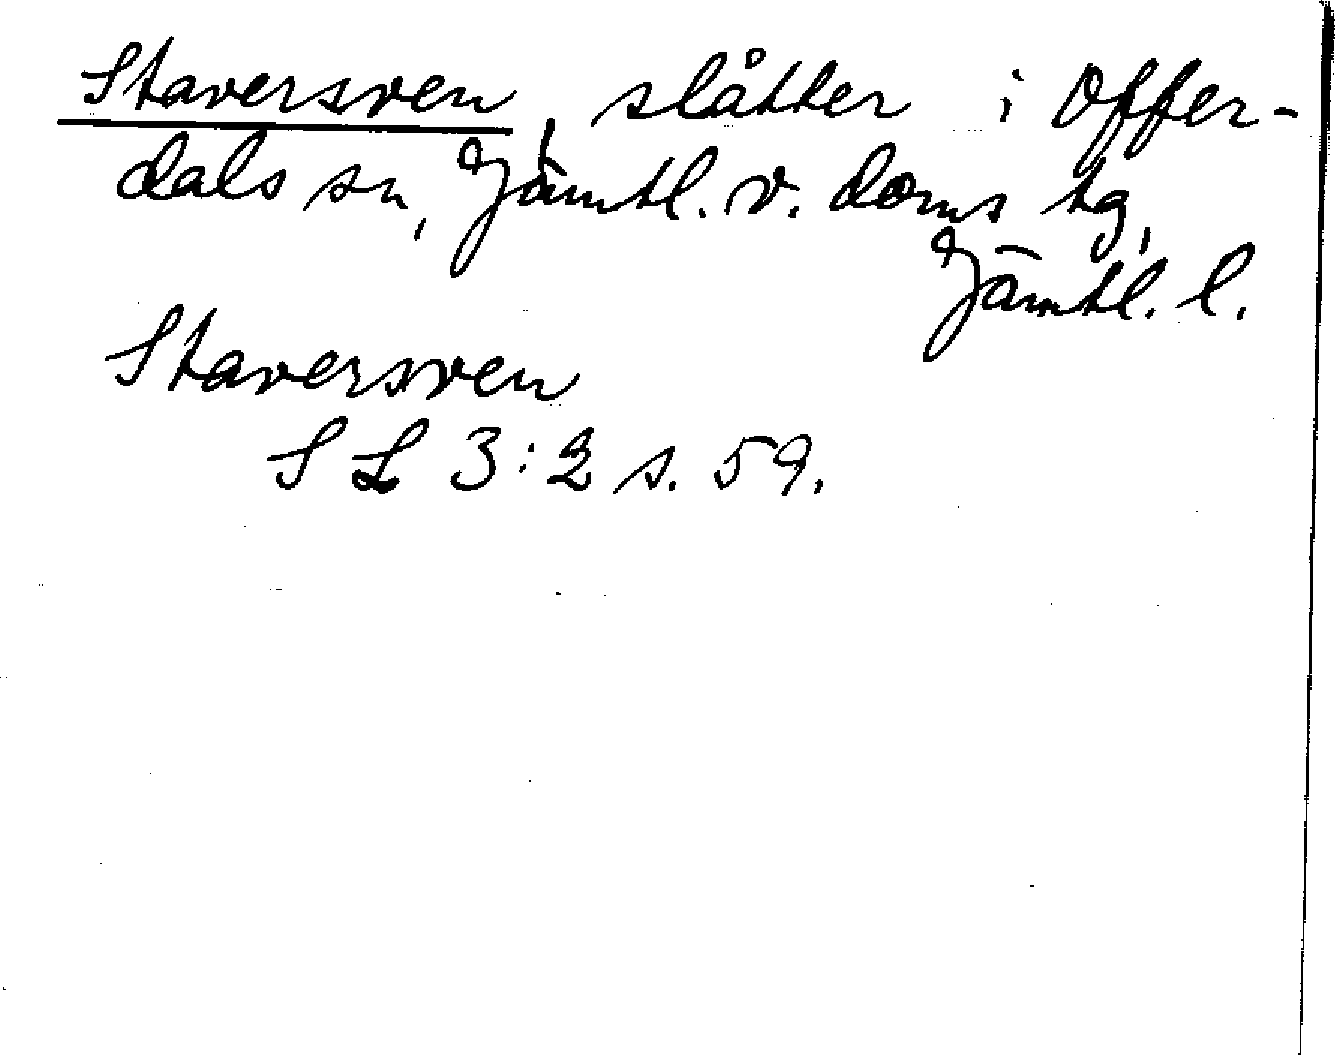 Staversven, slåtter i Offer-
dals sn, Jämtl. v. doms tg,
Jämtl. l.
Staversven
S L 3:2 s. 59.